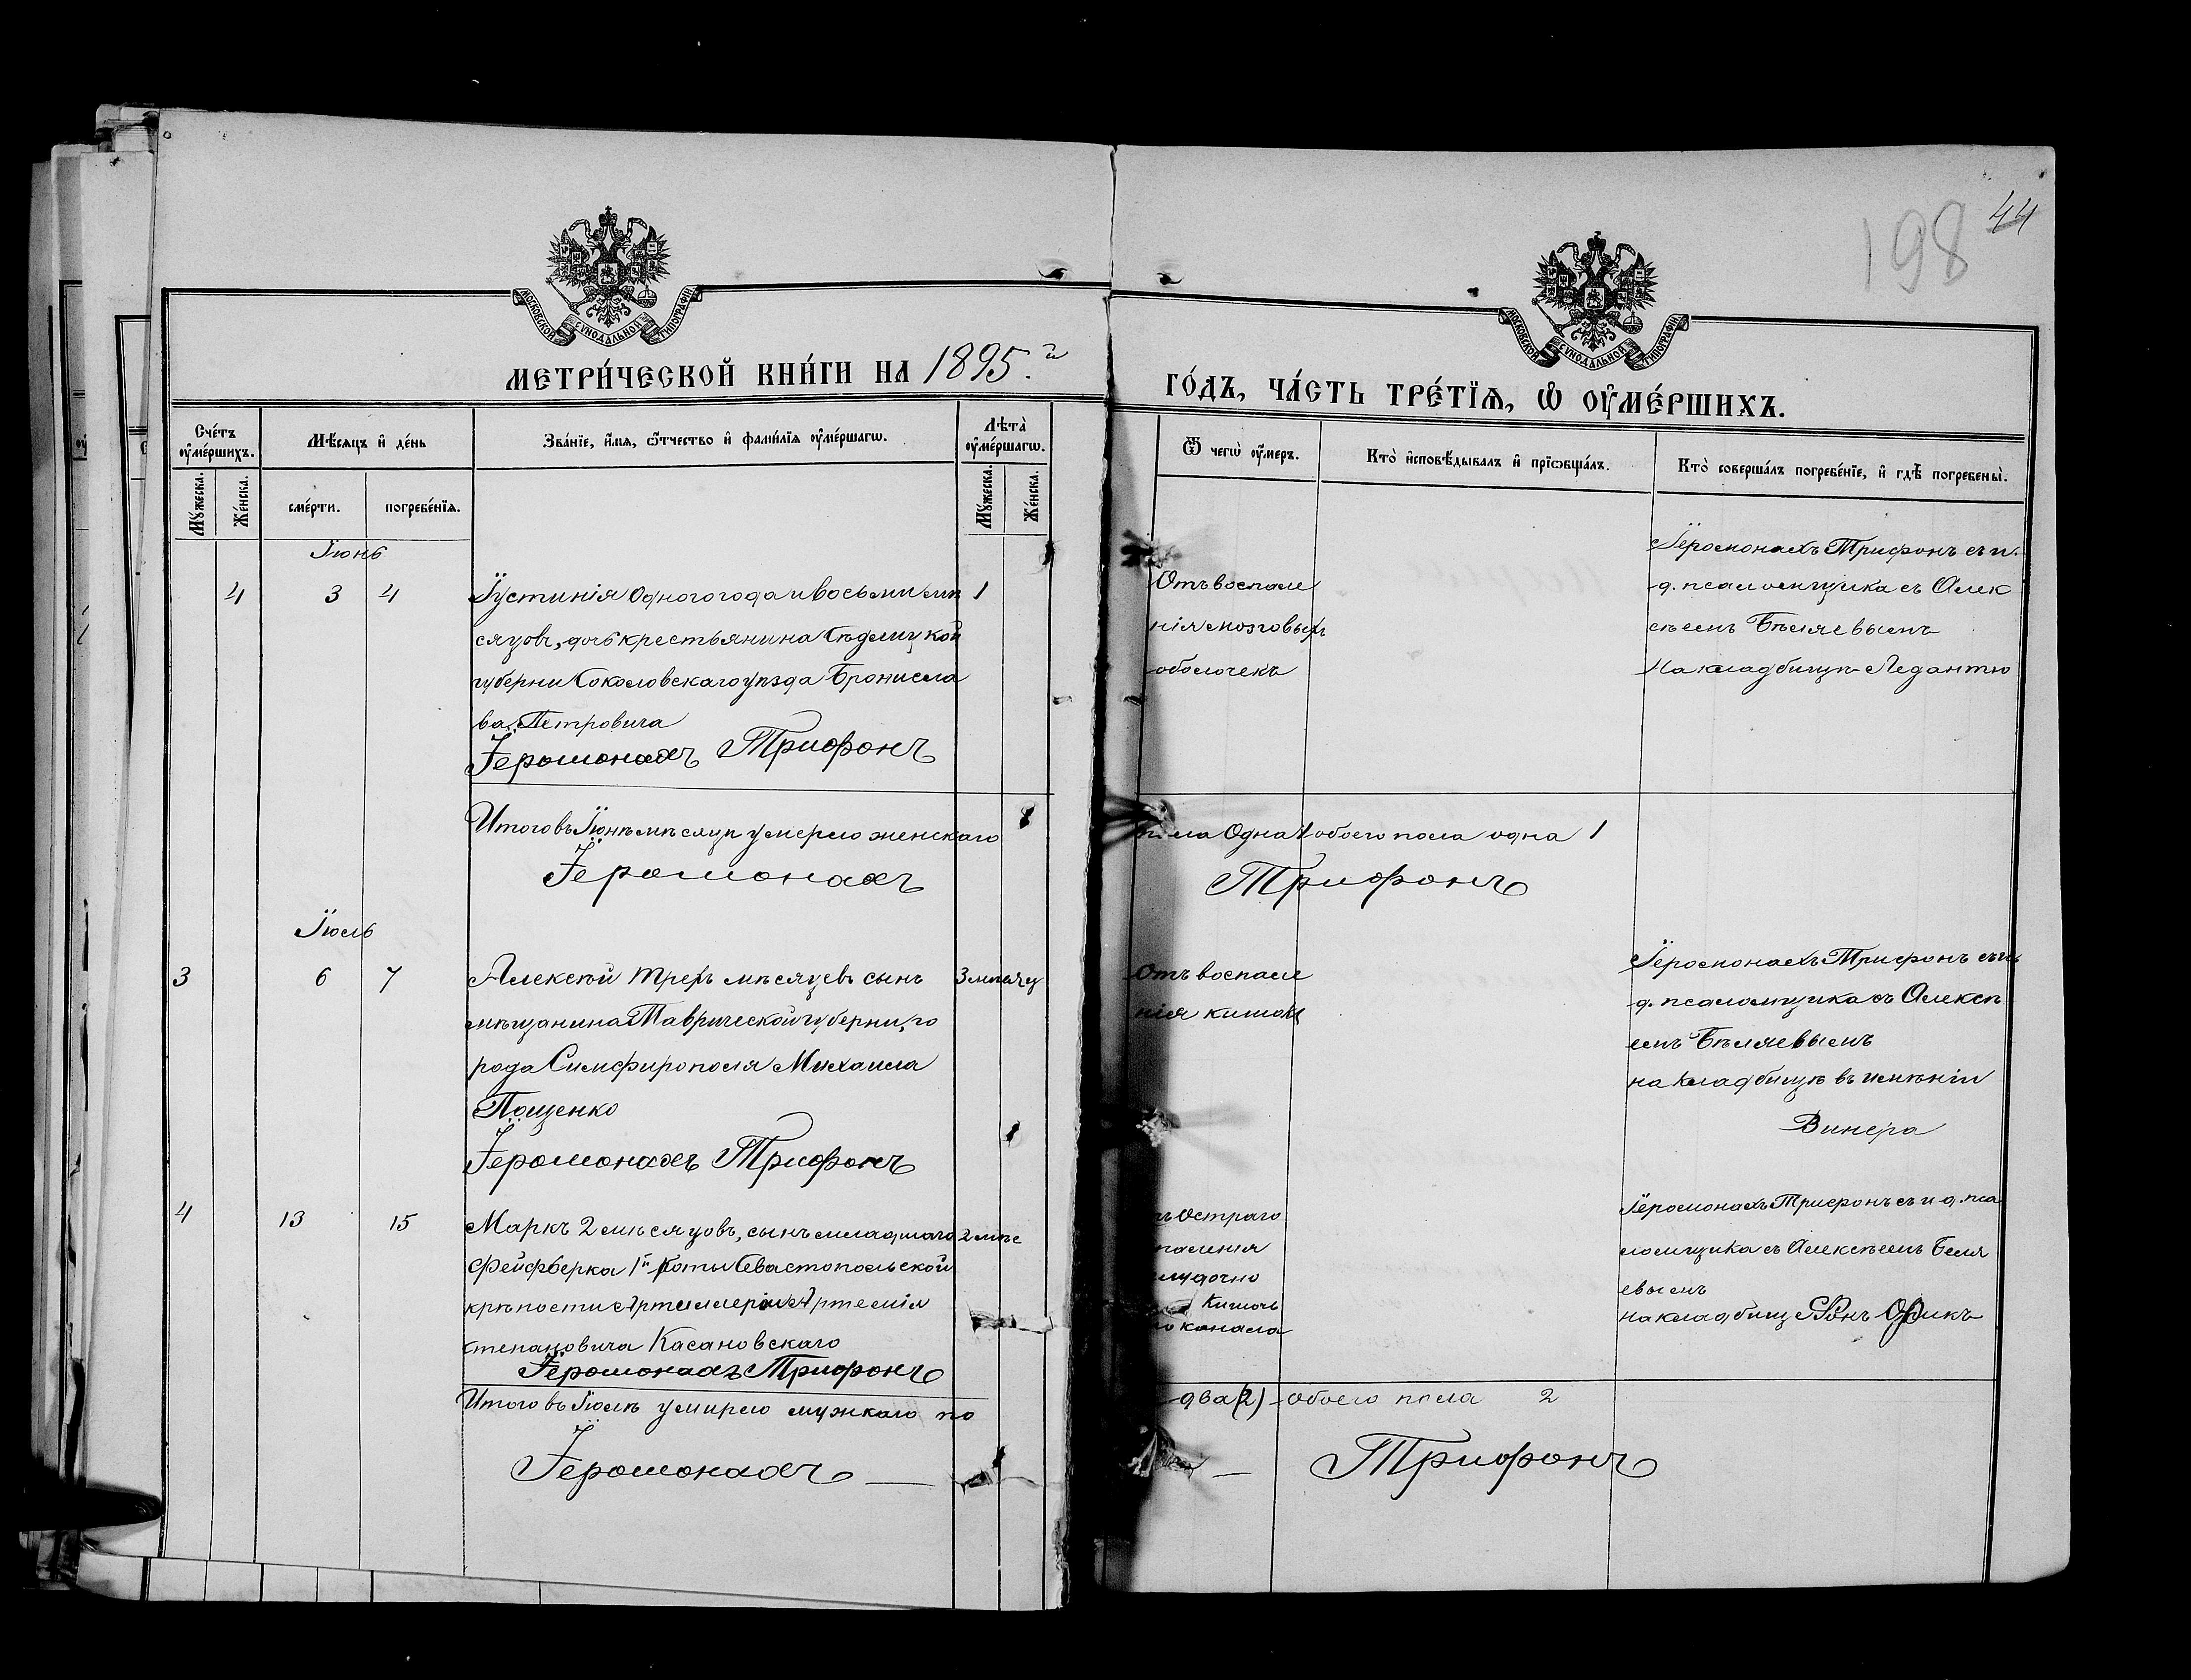 198 44
МОСКОВСКОЙ СѴНОДАЛЬНОЙ ТИПОГРАФІИ
МОСКОВСКОЙ СѴНОДАЛЬНОЙ ТИПОГРАФІИ
МЕТРИ́ЧЕСКОЙ КНИ́ГИ НА 1895 г.
ГО́ДЪ, ЧА́СТЬ ТРЕ́ТЇѦ, Ѡ҆ ОУ҆МЕ́РШИХЪ.
Сче́тъ оу҆ме́ршихъ.
Мꙋ́жеска.
Же́нска.
Мѣ́сѧцъ и҆ де́нь
сме́рти.
погребе́нїѧ.
Зва́нїе, и҆́мѧ, ѻ҆́тчество и҆ фами́лїѧ оу҆ме́ршагѡ.
Лѣта̀ оу҆ме́ршагѡ.
Мꙋ́жеска.
Же́нска.
Ѿ чегѡ̀ оу҆́меръ.
Кто̀ и҆сповѣ́дывалъ и҆ прїѡбща́лъ.
Кто̀ соверша́лъ погребе́нїе, и҆ гдѣ̀ погребены̀.
Іюнь
4 3 4
Іустинія Одного года и восьми мѣ 1
сяцовъ, дочь крестьянина Сѣдлицкой
губерни Соколовскаго уѣзда Бронисла
ва Петровича
Іеромонахъ Трифонъ
Отъ воспале
нія мозговыхъ
оболочекъ
Іеромонахъ Трифонъ съ и.
д. псаломщика съ Алек
сѣемъ Бѣляевымъ
На кладбищѣ Ледантю
Итого въ Іюнѣ мѣсяцѣ умерло женскаго
пола Одна 1 обоего пола одна 1
Іеромонахъ Трифонъ
Іюль
3 6 7
Алексѣй трехъ мѣсяцевъ сынъ 3 мѣсяц
мѣщанина Таврической губерни, го
рода Симфирополя Михаила
Пощенко
Іеромонахъ Трифонъ
Отъ воспале
нія кишокъ
Іеромонахъ Трифонъ съ и.
д. псаломщика съ Алексѣ
емъ Бѣляевымъ
на кладбищѣ въ имѣніи
Винера
4 13 15
Маркъ 2 мѣсяцовъ, сынъ младшаго 2 мѣс
Фейфверка 1й Роты Севастопольской
крѣпости Артиллеріи Артемія
степановича Касановскаго
Іеромонахъ Трифонъ
остраго
паленія
лудочно
Кишеч
канала
Іеромонахъ Трифонъ съ и д. пса
ломщика съ Алексѣемъ Беля
евымъ
на кладбищ
Итого въ Іюлѣ умирло мужкаго по
два (2) обоего пола 2
Іеромонахъ Трифонъ